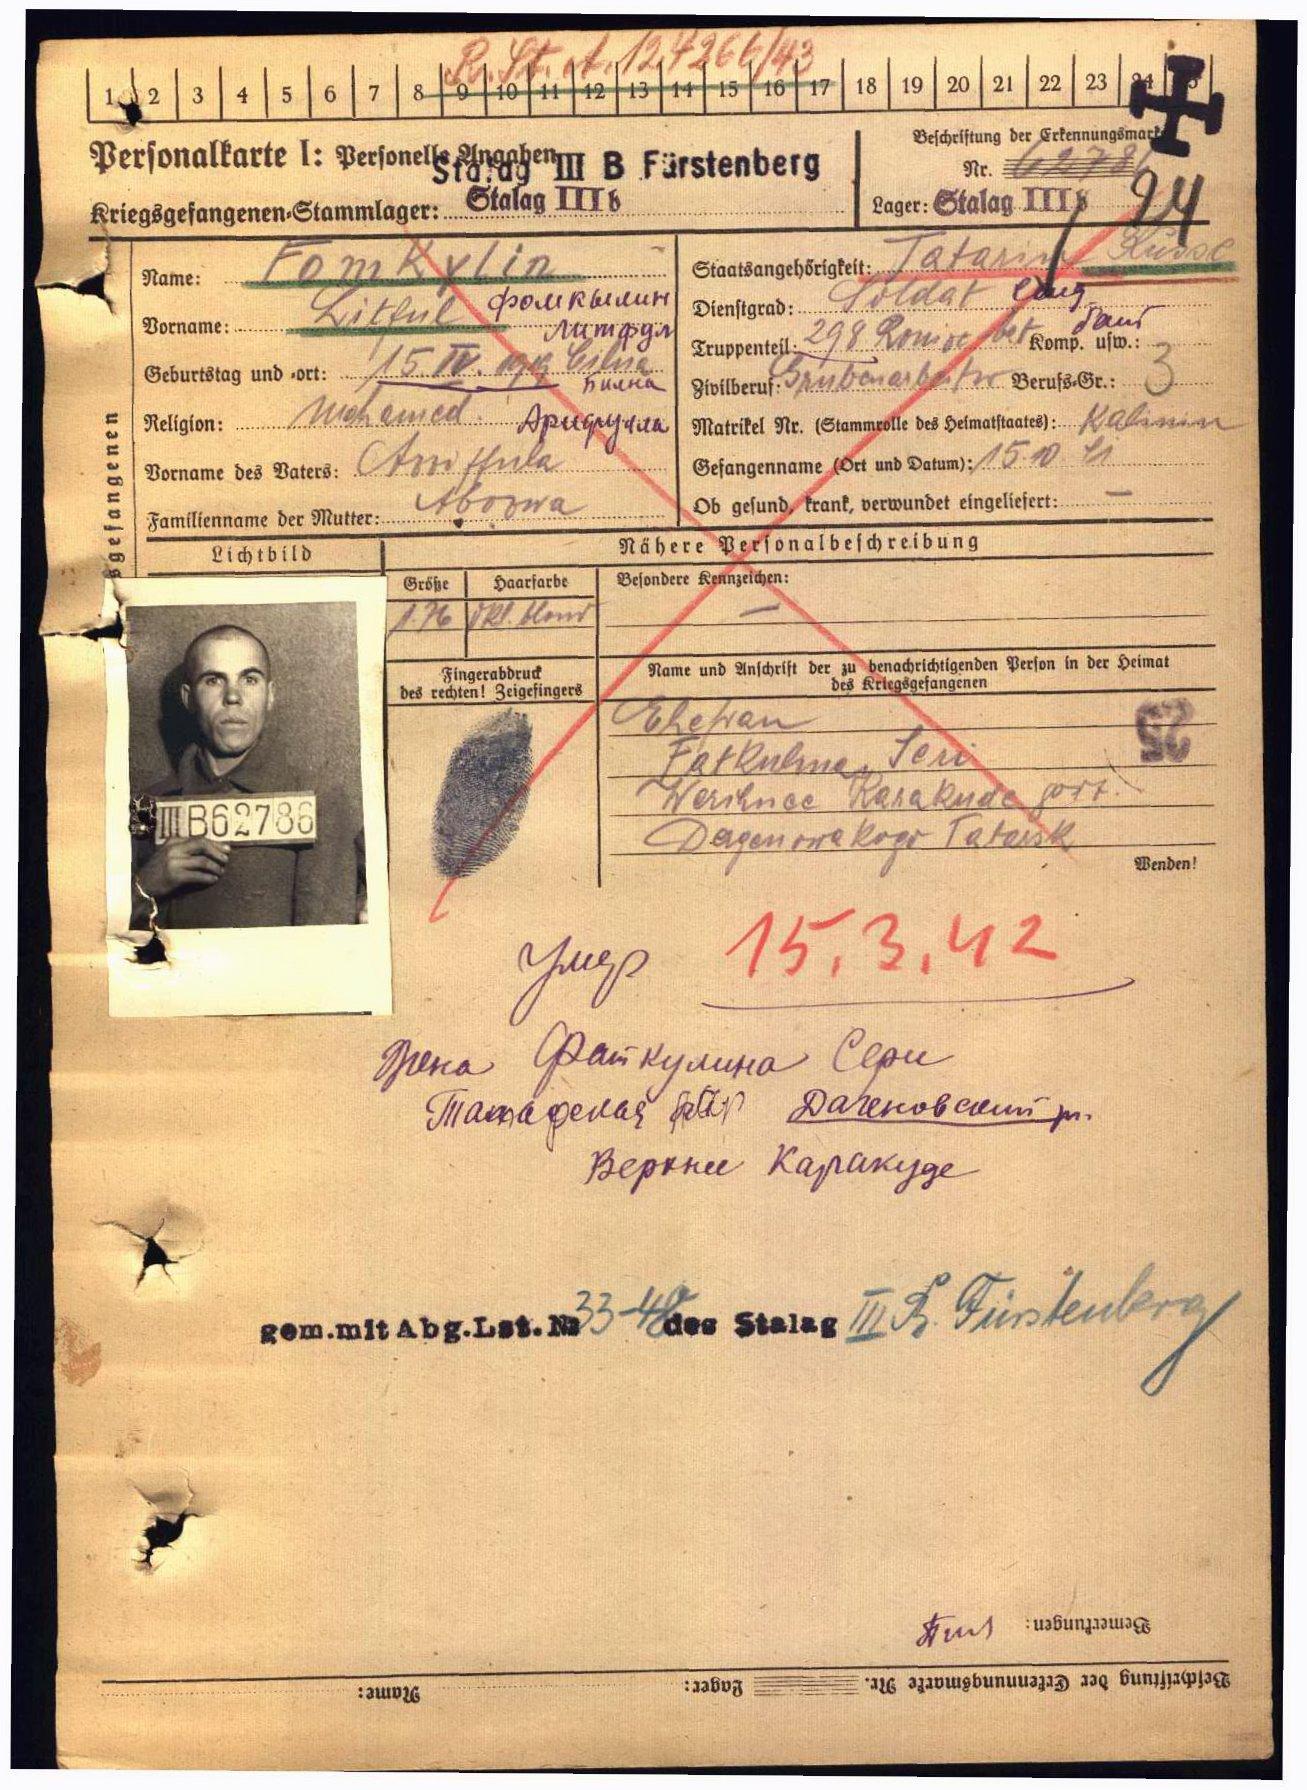 R. St. A. 124266/43
1 2 3 4 5 6 7 8 9 10 11 12 13 14 15 16 17 18 19 20 21 22 23 24
Personalkarte I: Personelle Angaben
Stalag III B Fürstenberg
Kriegsgefangenen-Stammlager: Stalag III b
Beschriftung der Erkennungsmarke
Nr. 62786
Lager: Stalag III b
94
Name: Fomkylin
Фомкылин
Vorname: Litful
Литфул
Geburtstag und -ort: 15. IV. 1919
Билна
Religion: Mohamed.
Арифулла
Vorname des Vaters:
Familienname der Mutter:
Staatsangehörigkeit: Tatarin Russe
Dienstgrad: Soldat
Truppenteil: 298 Komp. usw.:
Zivilberuf: Grubenarbeiter Berufs-Gr.: 3
Matrikel Nr. (Stammrolle des Heimatstaates): Kalinin
Gefangenname (Ort und Datum): 15.10.41
Ob gesund, krank, verwundet eingeliefert: —
sgefangenen
Lichtbild
Nähere Personalbeschreibung
Größe Haarfarbe
1.76 dkl. blond
Besondere Kennzeichen:
—
Fingerabdruck
des rechten! Zeigefingers
Name und Anschrift der zu benachrichtigenden Person in der Heimat
des Kriegsgefangenen
Ehefrau
Fatkulina, Seri
Werchnee Karakude
Tatarsk
25
Wenden!
III B62786
Умер 15.3.42
Жена Фаткулина Сери
Татарская Даченовский р.
Верхни Каракуде
gem.mit Abg.Lst.№ 33-48 des Stalag III B. Fürstenberg
Bemerkungen:
Beschriftung der Erkennungsmarke Nr. Lager: Name: